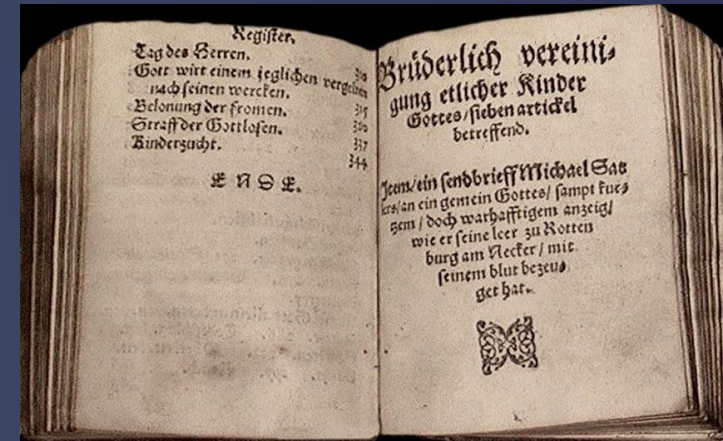 Register.
Tag des Herren. 310
Gott wirt einem jeglichen vergelten
nach seinen wercken. 315
Belonung der fromen. 320
Straff der Gottlosen. 337
Kinderzucht. 344
ENDE.
Brüderlich vereini⸗
gung etlicher Kinder
Gottes/sieben artickel
betreffend.
Item/ein sendbrieff Michael Sat
lers/an ein gemein Gottes/ sampt kur⸗
tzem / doch warhafftigem anzeig/
wie er seine leer zu Rotten
burg am Necker / mit
seinem blut bezeu⸗
get hat.